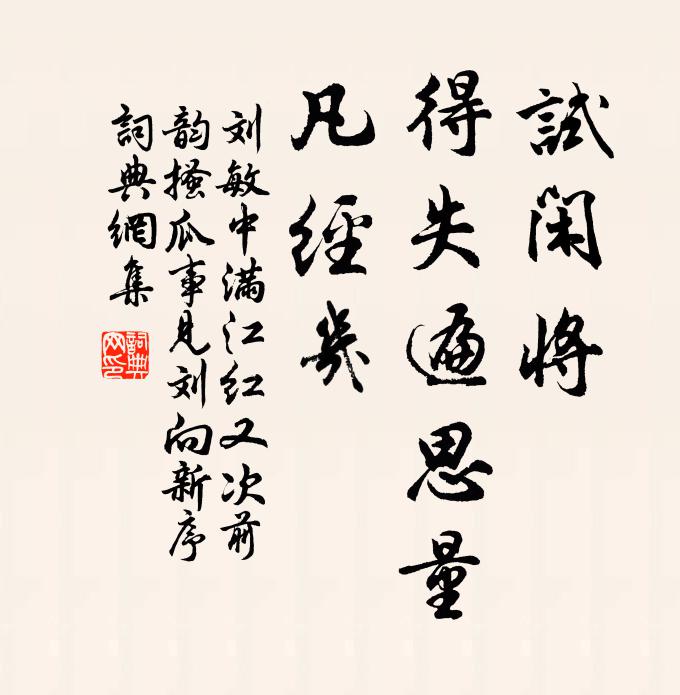 試閑將
得失遍思量
凡經幾
刘敏中满江红又次前
韵搔瓜事見刘向新序
詞典網集
詞典网印